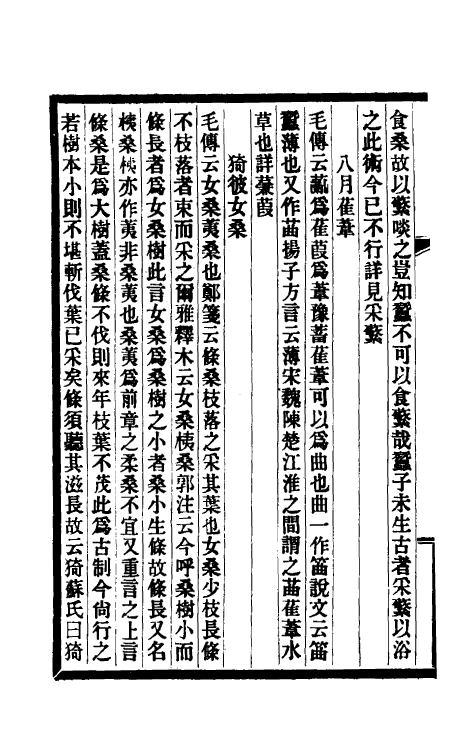 食桑故以蘩啖之豈知蠶不可以食蘩哉蠶子未生古者采蘩以浴
之此術今已不行詳見采蘩
八月萑葦
毛傳云薍爲萑葭爲葦豫蓄萑葦可以爲曲也曲一作䒼說文云䒼
蠶薄也又作苖揚子方言云薄宋魏陳楚江淮之間謂之苖萑葦水
草也詳蒹葭
猗彼女桑
毛傳云女桑荑桑也鄭箋云條桑枝落之采其葉也女桑少枝長條
不枝落者束而采之爾雅釋木云女桑桋桑郭注云今呼桑樹小而
條長者爲女桑樹此言女桑爲桑樹之小者桑小生條故條長又名
桋桑桋亦作荑非桑荑也桑荑爲前章之柔桑不宜又重言之上言
條桑是爲大樹蓋桑條不伐則來年枝葉不茂此爲古制今尙行之
若樹本小則不堪斬伐葉已采矣條須聽其滋長故云猗蘇氏曰猗